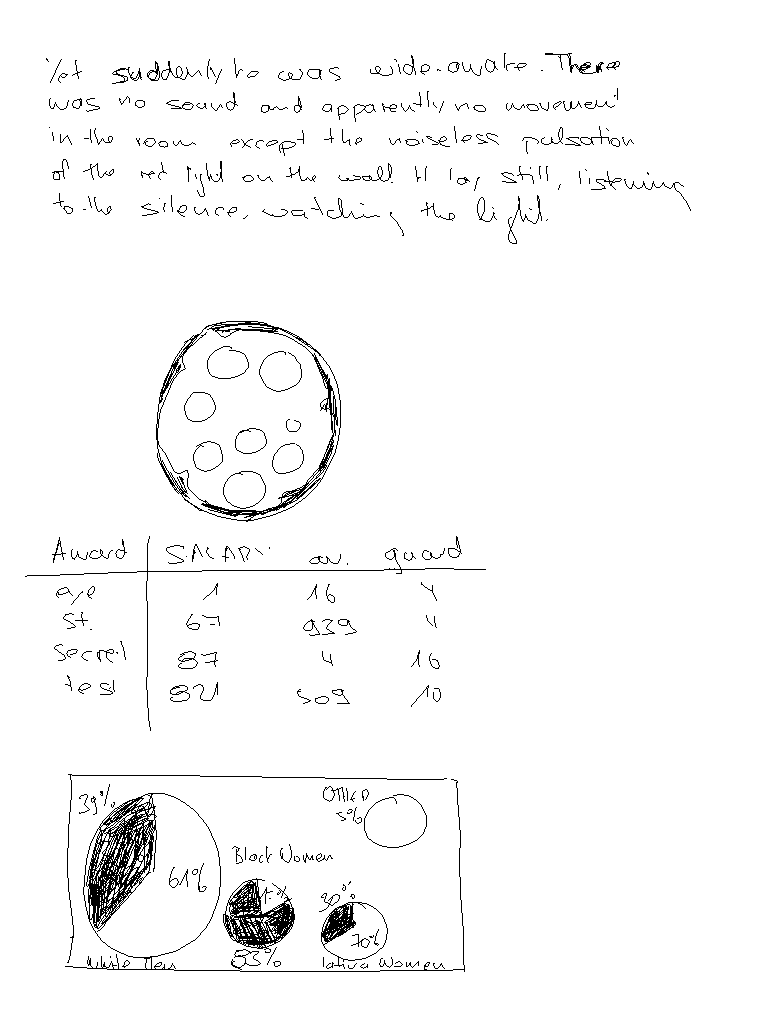 Yet suddenly he was wide-awake. There
was no sound and apparently no movement
in the room except the noiseless pulsation
of the red light on the wall. H lay still, listening
to the silence, watching the light.
Award SALARY av. guard
age 1 16 4
St. 67 939 4
Secret 87 4 16
test 821 509 10
39% OTHER
5%
61% Black Women
30%
70%
White Men 83% lativa Women